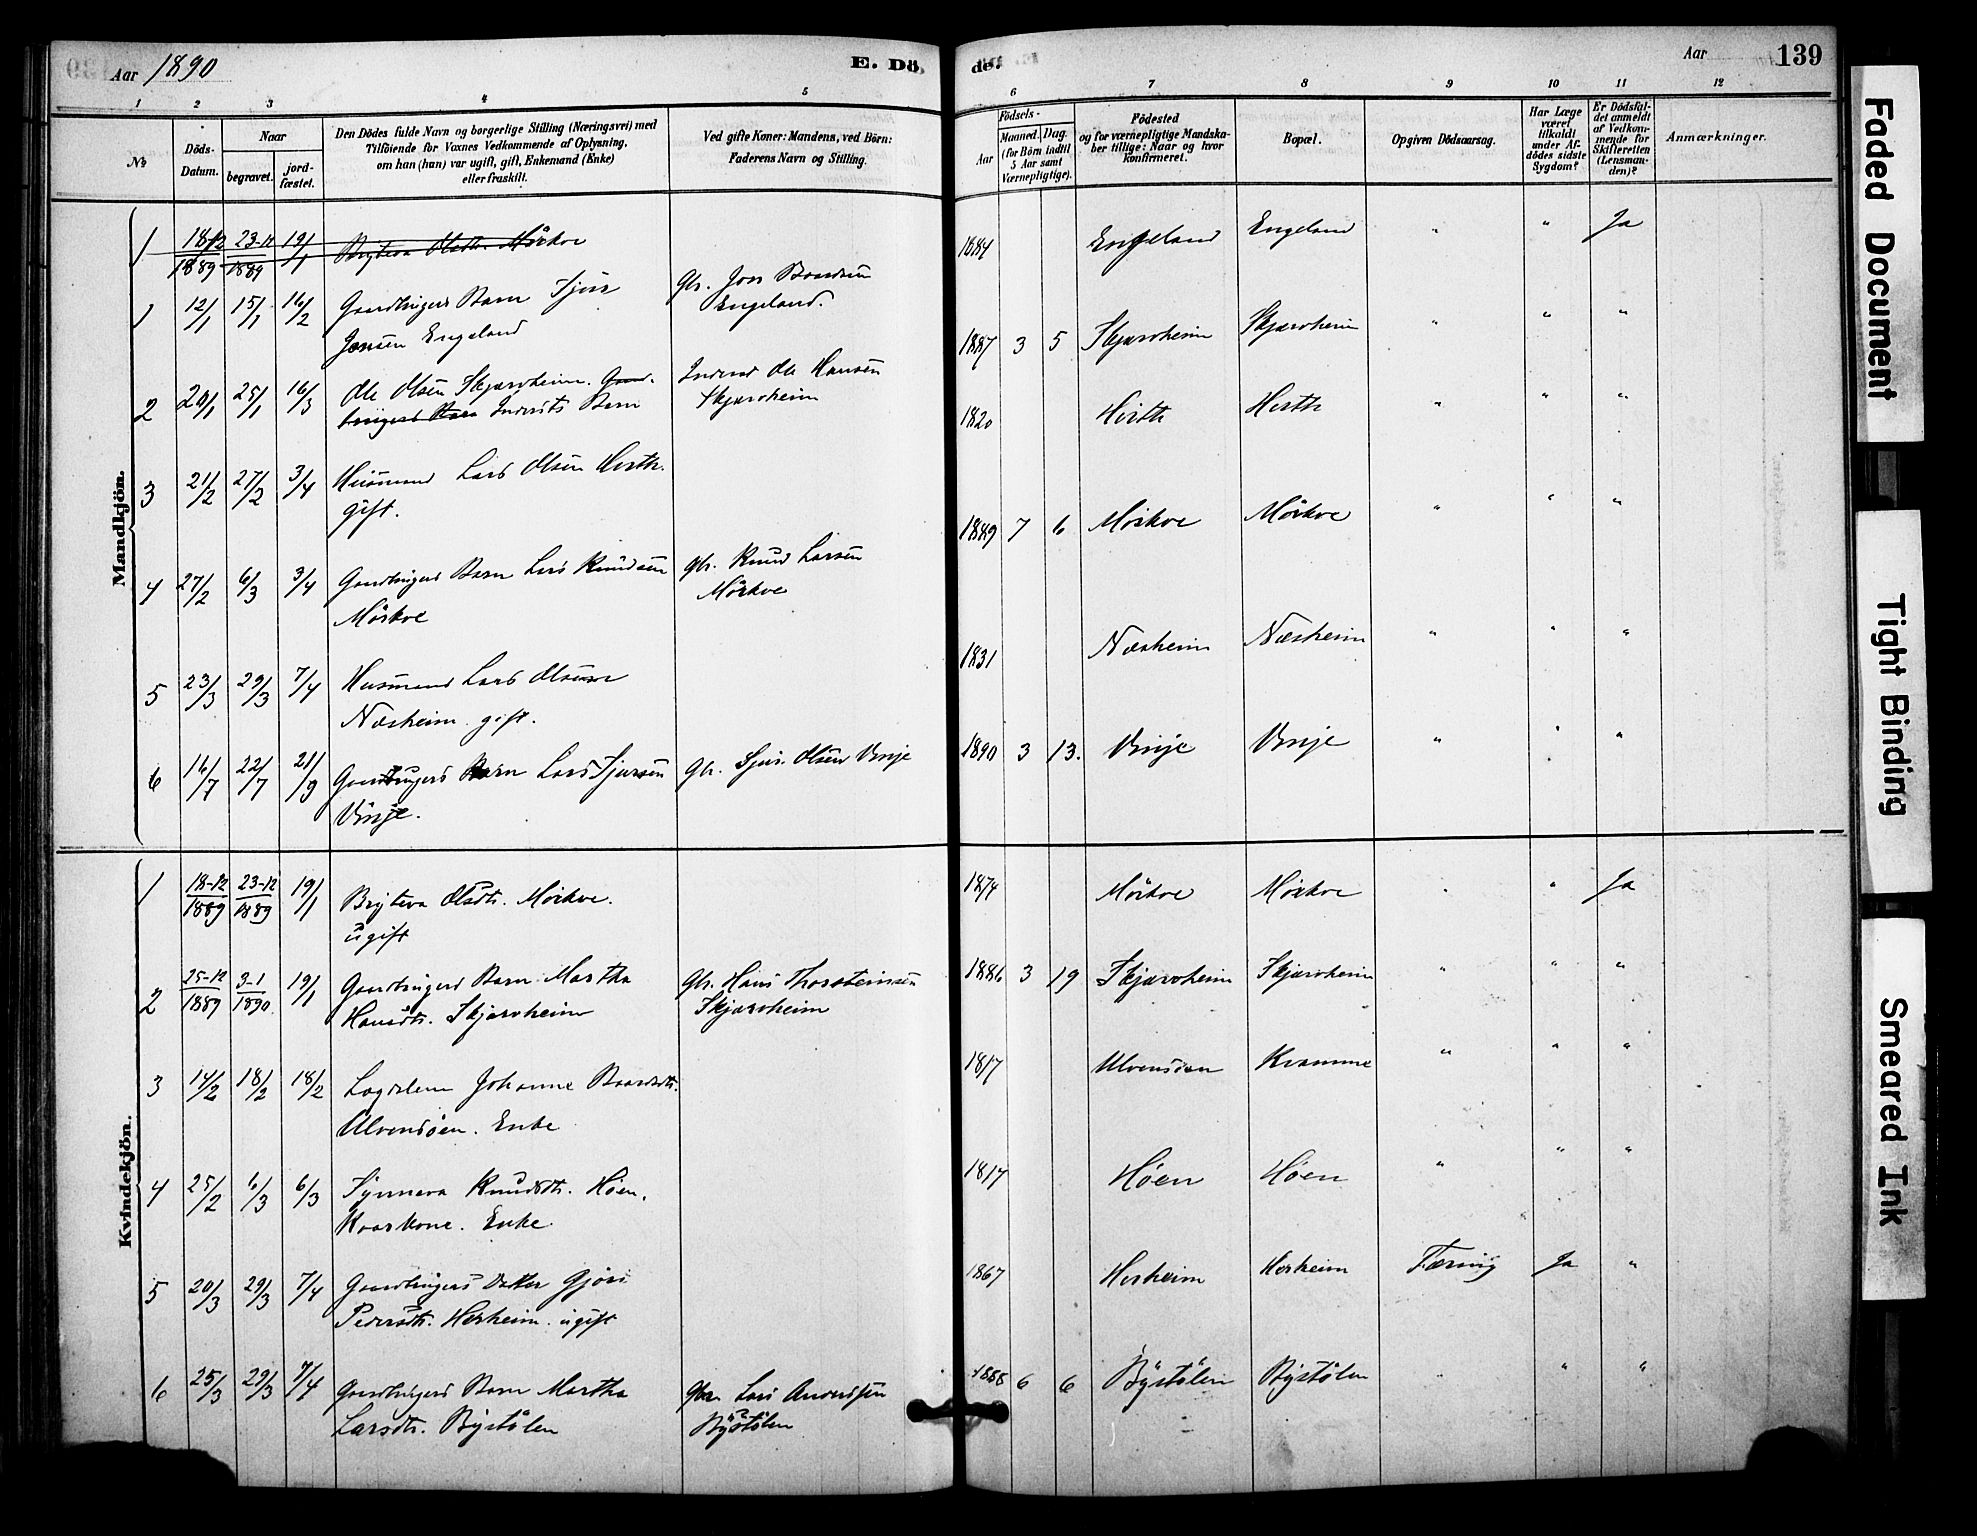 Aar 1890
E. Dö
1 2 3 4 5
№
Döds-
Datum.
Naar
begravet.
jord-
fæstet.
Den Dödes fulde Navn og borgerlige Stilling (Næringsvei) med
Tilföiende for Voxnes Vedkommende af Oplysning,
om han (hun) var ugift, gift, Enkemand (Enke)
eller fraskilt.
Ved gifte Koner: Mandens, ved Börn:
Faderens Navn og Stilling.
Mandkjön.
1 18/12 1889 23-12 1889 19/1 Bryteva Olsdtr. Mörkve
1 12/1 15/1 16/2 Gaardbrugers Barn Sjur
Jonsen Engeland
Gbr. Jon Baardsen
Engeland.
2 20/1 25/1 16/3 Ole Olsen Skjærvheim. Gaard-
brugers Barn Inderst's Barn
Inderst Ole Hansen
Skjærvheim
3 21/2 27/2 3/4 Husmand Lars Olsen Herth.
gift.
4 27/2 6/3 3/4 Gaardbrugers Barn Lars Knudsen
Mörkve
Gbr. Knud Larsen
Mörkve
5 23/3 29/3 7/4 Husmand Lars Olsen
Næsheim. gift.
6 16/7 22/7 21/9 Gaardbrugers Barn Lars Sjursen
Vinje.
Gbr. Sjur Olsen Vinje
Kvindekjön.
1 18-12 1889 23-12 1889 19/1 Bryteva Olsdtr. Mörkve.
ugift
2 25-12 1889 3-1 1890. 19/1 Gaardbrugers Barn Martha
Hansdtr. Skjærvheim
Gbr. Hans Thorsteinsen
Skjærvheim
3 14/2 18/2 18/2 Lægdslem Johanne Baardsdtr.
Ulvensöen. Enke
4 25/2 6/3 6/3 Synneva Knudsdtr. Höen.
Kaarkone. Enke.
5 20/3 29/3 7/4 Gaardbrugers Datter Gjöri
Pedersdtr. Herheim. ugift
6 25/3 29/3 7/4 Gaardbrugers Barn Martha
Larsdtr. Byestölen
Gbr. Lars Andersen
Byestölen
de.
Aar 139
6 7 8 9 10 11 12
Födsels-
Aar
Maaned.
Dag.
(for Börn indtil
5 Aar samt
Værnepligtige).
Födested
og for værnepligtige Mandska-
ber tillige: Naar og hvor
konfirmeret.
Bopæl.
Opgiven Dödsaarsag.
Har Læge
været
tilkaldt
under Af-
dödes sidste
Sygdom?
Er Dödsfal-
det anmeldt
af Vedkom-
mende for
Skifteretten
(Lensman-
den)?
Anmærkninger.
1884 Engeland Engeland " " Ja
1887 3 5 Skjærvheim Skjærvheim " " "
1820 Herth Herth " " "
1889 7 6 Mörkve Mörkve " " "
1831 Næsheim Næsheim " " "
1890 3 13. Vinje Vinje " " "
1874 Mörkve Mörkve " " Ja
1886 3 19 Skjærvheim Skjærvheim " " "
1817 Ulvensöen Kvamme " " "
1817 Höen Höen " " "
1867 Herheim Herheim Tæring Ja "
1888 6 6 Byestölen Byestölen " "
Faded Document
Tight Binding
Smeared Ink